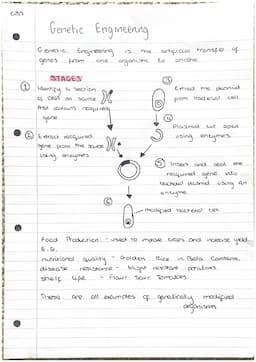 Genetic Engineering
Genetic Engineering is the artificial transfer of
genes from one organism to another
STAGES
① Identify a section
of DNA or source
that contains required
gene.
② Extract required
gene from the source
using enzymes
③ Extract the plasmid
from bacterial cell.
④ Plasmid cut open
using enzymes.
⑤ Insert and seal the
required gene into
bacterial plasmid using an
enzyme
⑥
modified bacterial cell.
Food Production - used to improve crops and increase yield
E.G.
nutritional quality - Golden Rice in Beta Carotene.
disease resistance - blight resistant potatoes.
shelf life - Flavr Savr Tomatoes.
These are all examples of genetically modified
organism